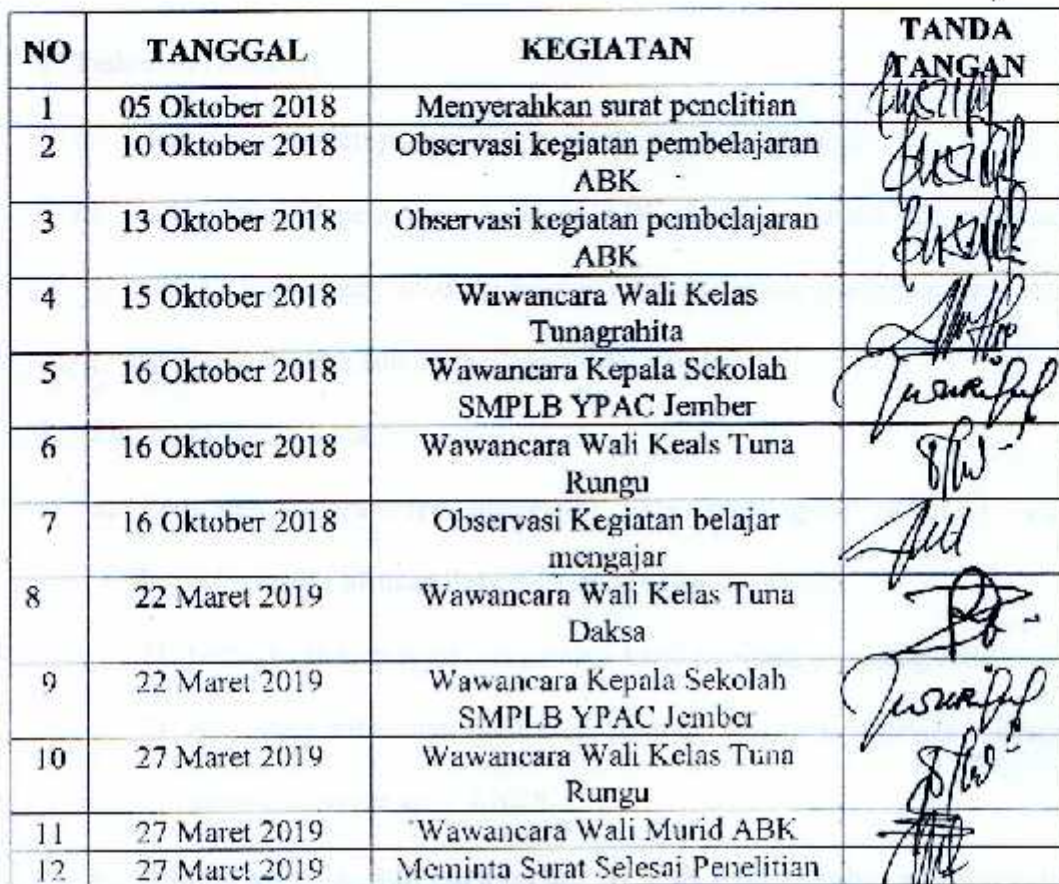 NO TANGGAL KEGIATAN TANDA TANGAN
1 05 Oktober 2018 Menyerahkan surat penelitian
2 10 Oktober 2018 Observasi kegiatan pembelajaran
ABK
3 13 Oktober 2018 Observasi kegiatan pembelajaran
ABK
4 15 Oktober 2018 Wawancara Wali Kelas
Tunagrahita
5 16 Oktober 2018 Wawancara Kepala Sekolah
SMPLB YPAC Jember
6 16 Oktober 2018 Wawancara Wali Keals Tuna
Rungu
7 16 Oktober 2018 Observasi Kegiatan belajar
mengajar
8 22 Maret 2019 Wawancara Wali Kelas Tuna
Daksa
9 22 Maret 2019 Wawancara Kepala Sekolah
SMPLB YPAC Jember
10 27 Maret 2019 Wawancara Wali Kelas Tuna
Rungu
11 27 Maret 2019 Wawancara Wali Murid ABK
12 27 Maret 2019 Meminta Surat Selesai Penelitian